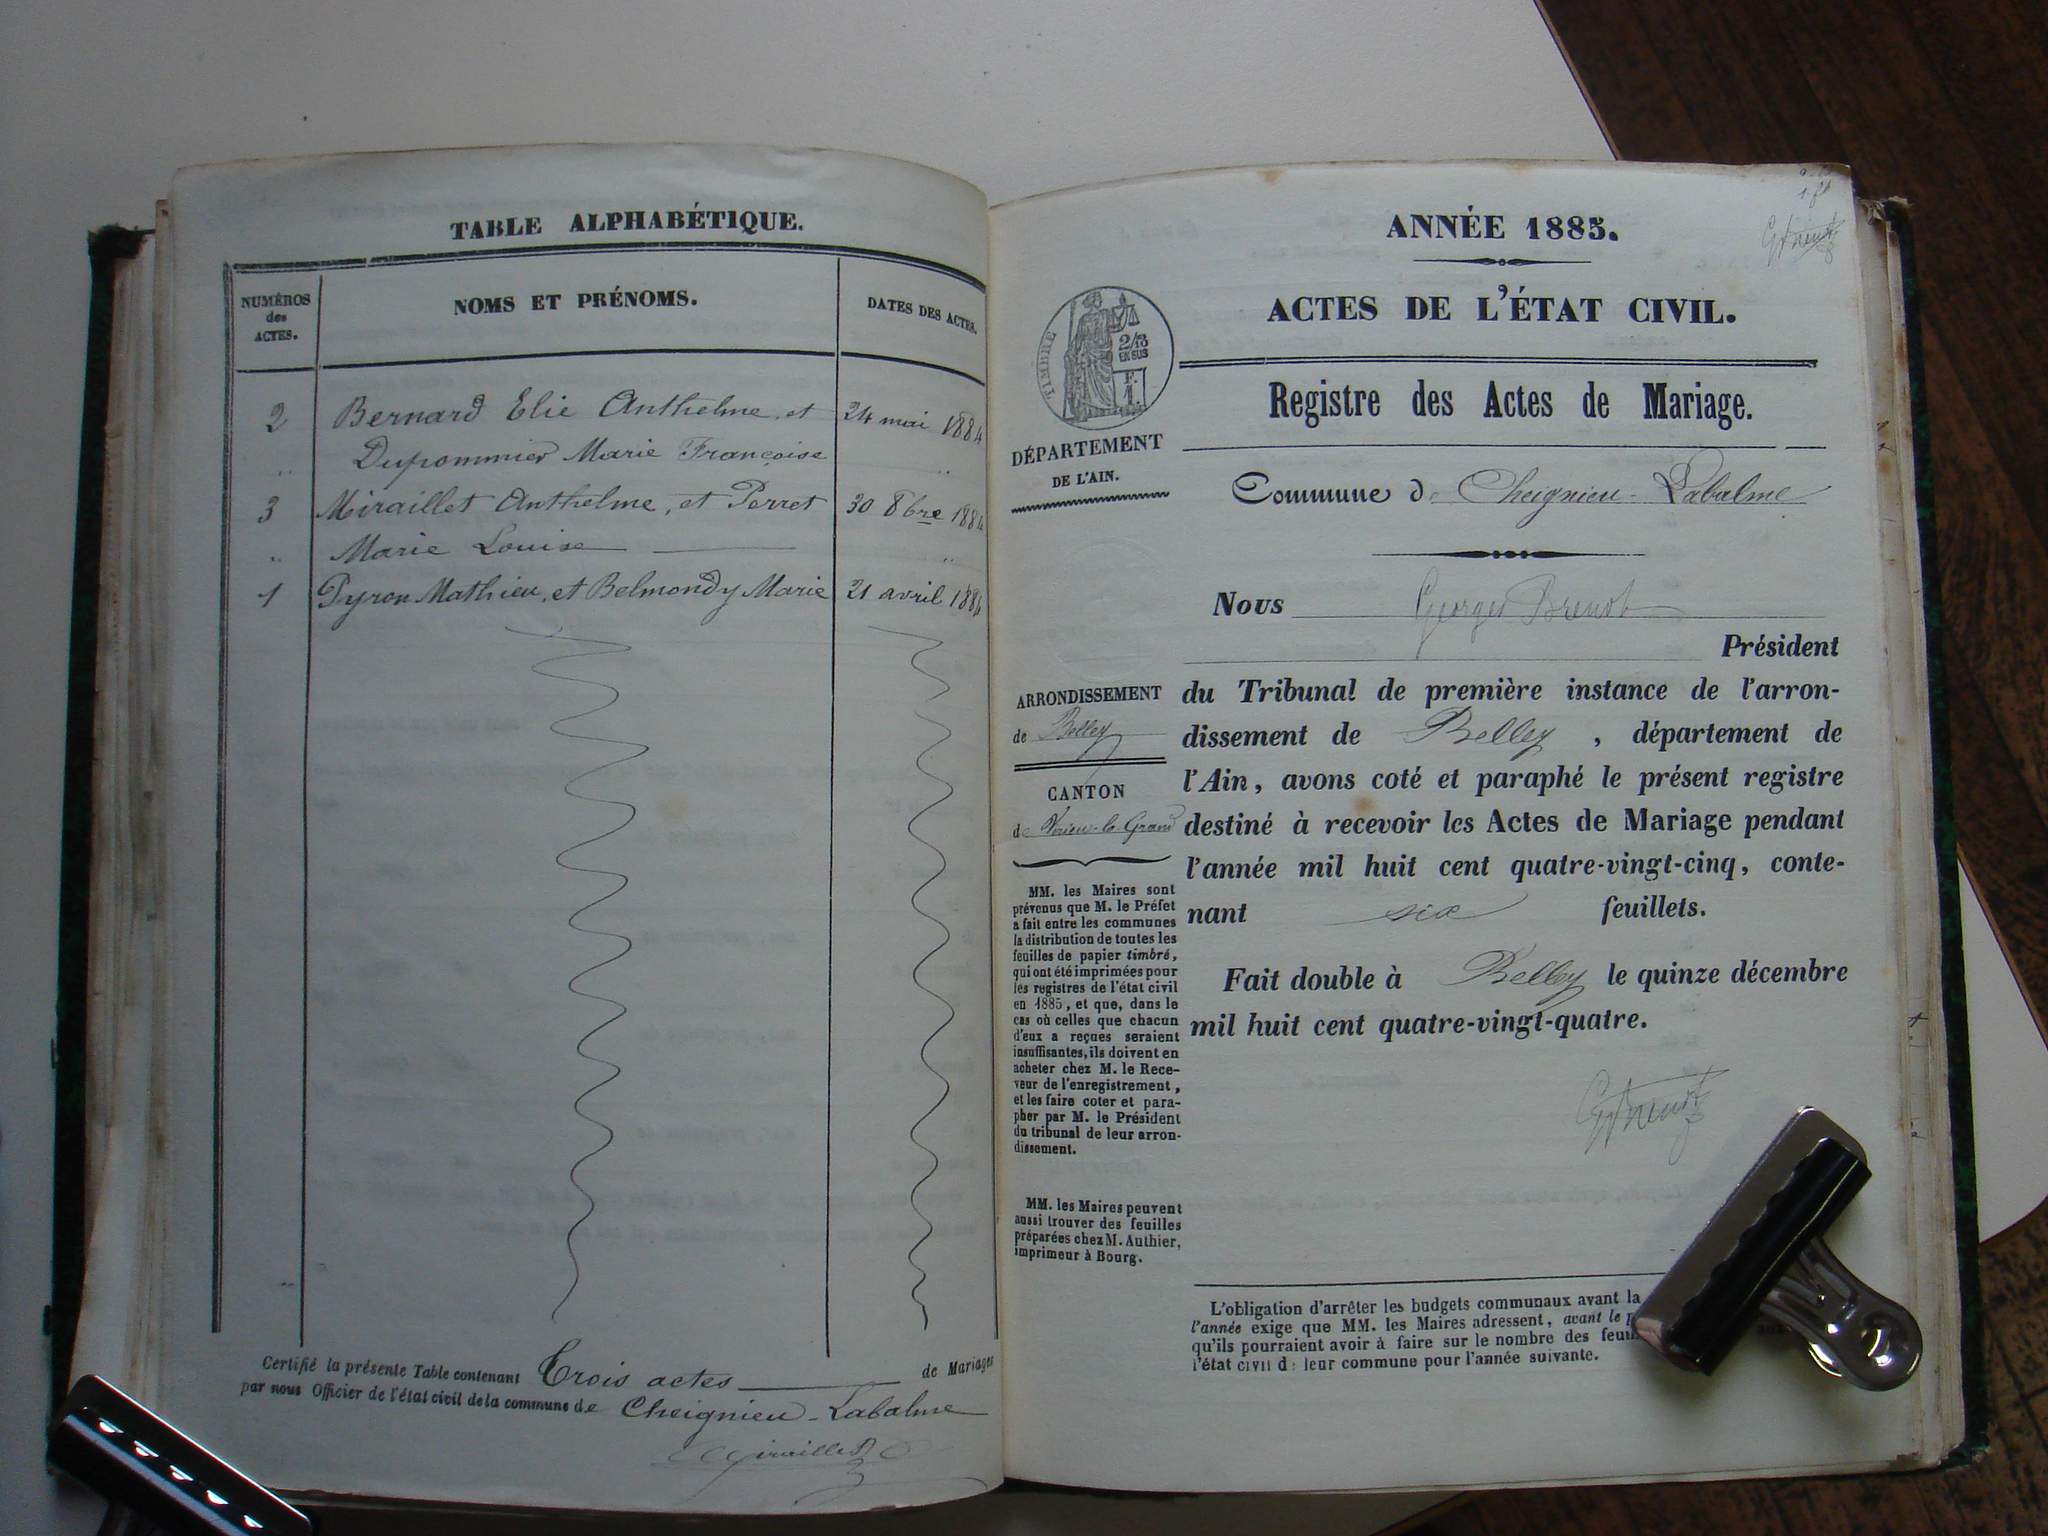 TABLE ALPHABÉTIQUE.
NUMÉROS
des
ACTES.
NOMS ET PRÉNOMS.
DATES DES ACTES.
2 Bernard Elie Anthelme, et 24 mai 1884
" Dupommier Marie Françoise "
3 Miraillet Anthelme, et Perret 30 8bre 1884
" Marie Louise "
1 Pyron Mathieu, et Belmondy Marie 21 avril 1884
Certifié la présente Table contenant Trois actes de Mariages
par nous Officier de l'état civil de la commune de Cheignieu-Labalme
ANNÉE 1885.
ACTES DE L'ÉTAT CIVIL.
TIMBRE
2/10
EN SUS
F.
1.
Registre des Actes de Mariage.
DÉPARTEMENT
DE L'AIN.
Commune de Cheignieu-Labalme
Nous Georges Brenot
Président
ARRONDISSEMENT
de Belley
CANTON
de Virieu-le-Grand
du Tribunal de première instance de l'arron-
dissement de Belley, département de
l'Ain, avons coté et paraphé le présent registre
destiné à recevoir les Actes de Mariage pendant
l'année mil huit cent quatre-vingt-cinq, conte-
nant six feuillets.
Fait double à Belley le quinze décembre
mil huit cent quatre-vingt-quatre.
MM. les Maires sont
prévenus que M. le Préfet
a fait entre les communes
la distribution de toutes les
feuilles de papier timbré,
qui ont été imprimées pour
les registres de l'état civil
en 1885, et que, dans le
cas où celles que chacun
d'eux a reçues seraient
insuffisantes, ils doivent en
acheter chez M. le Rece-
veur de l'enregistrement,
et les faire coter et para-
pher par M. le Président
du tribunal de leur arron-
dissement.
MM. les Maires peuvent
aussi trouver des feuilles
préparées chez M. Authier,
imprimeur à Bourg.
L'obligation d'arrêter les budgets communaux avant la
l'année exige que MM. les Maires adressent, avant le
qu'ils pourraient avoir à faire sur le nombre des
l'état civil de leur commune pour l'année suivante.